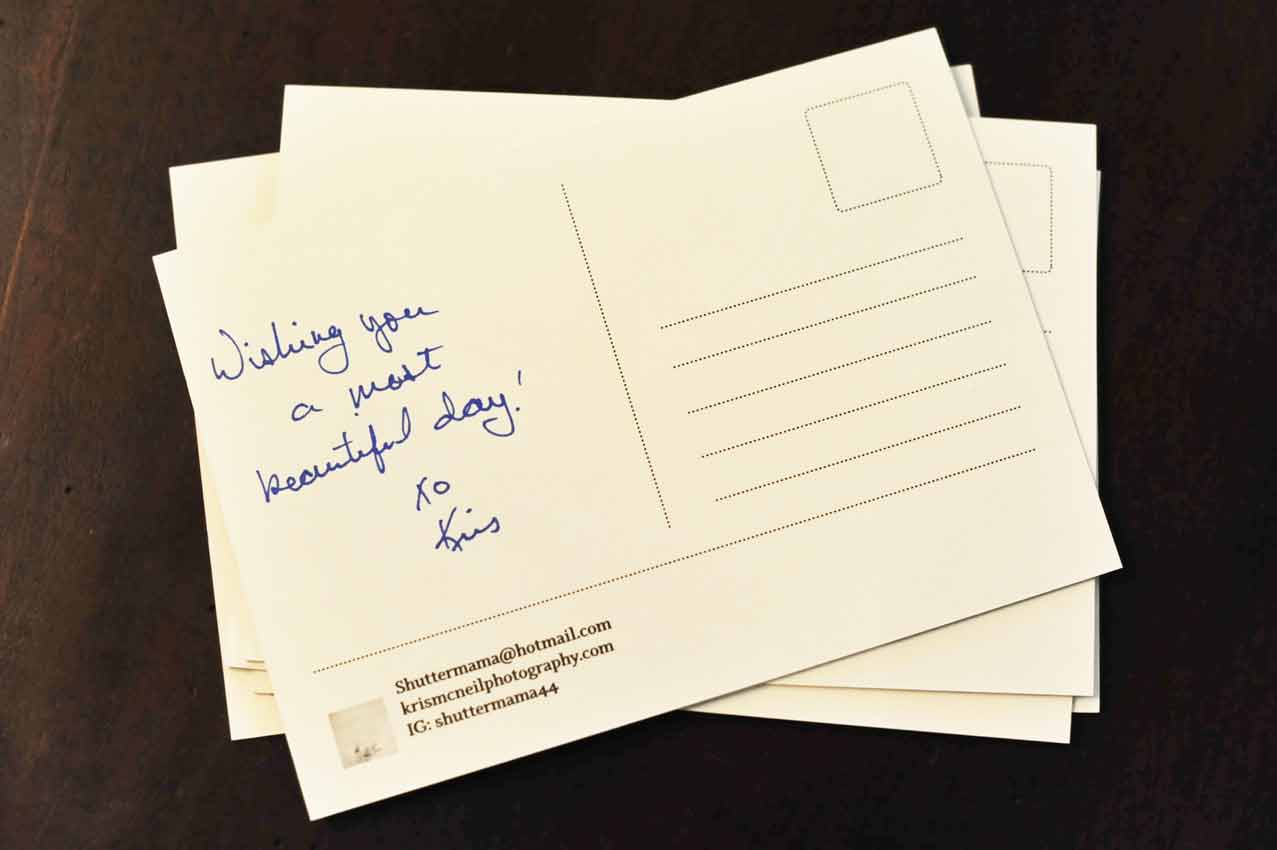 Wishing you
a most
beautiful day!
xo
Kris
Shuttermama@hotmail.com
krismcneilphotography.com
IG: shuttermama44